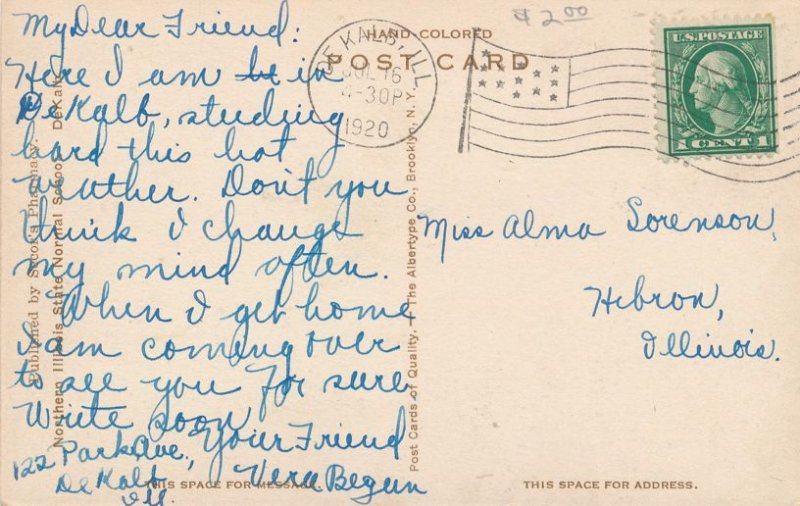 $2.00
HAND-COLORED
POST CARD
DE KALB, ILL
JUL 16
4-30P
1920
U.S. POSTAGE
1 CENT 1
My Dear Friend:
Here I am in
DeKalb, studying
hard this hot
weather. Don't you
think I change
my mind often.
When I get home
I am coming over
to see you for sure.
Write soon
Your Friend
Vera Begun
122 Park Ave.,
De Kalb
Ill.
Miss Alma Sorenson,
Hebron,
Illinois.
Published by Secor's Pharmacy.
Northern Illinois State Normal School, DeKalb
Post Cards of Quality. — The Albertype Co., Brooklyn, N. Y.
THIS SPACE FOR MESSAGE.
THIS SPACE FOR ADDRESS.